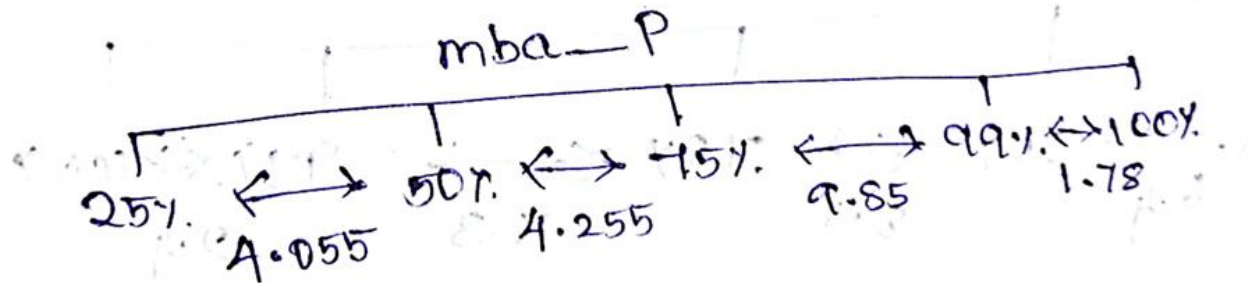 mba_P
25% ↔ 50% ↔ 75% ↔ 99% ↔ 100%
4.055 4.255 9.85 1.78